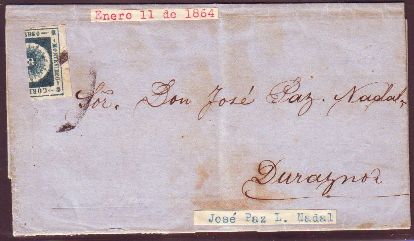 Enero 11 de 1864
Sor. Don José Paz. Nadal
Durazno
José Paz L. Nadal